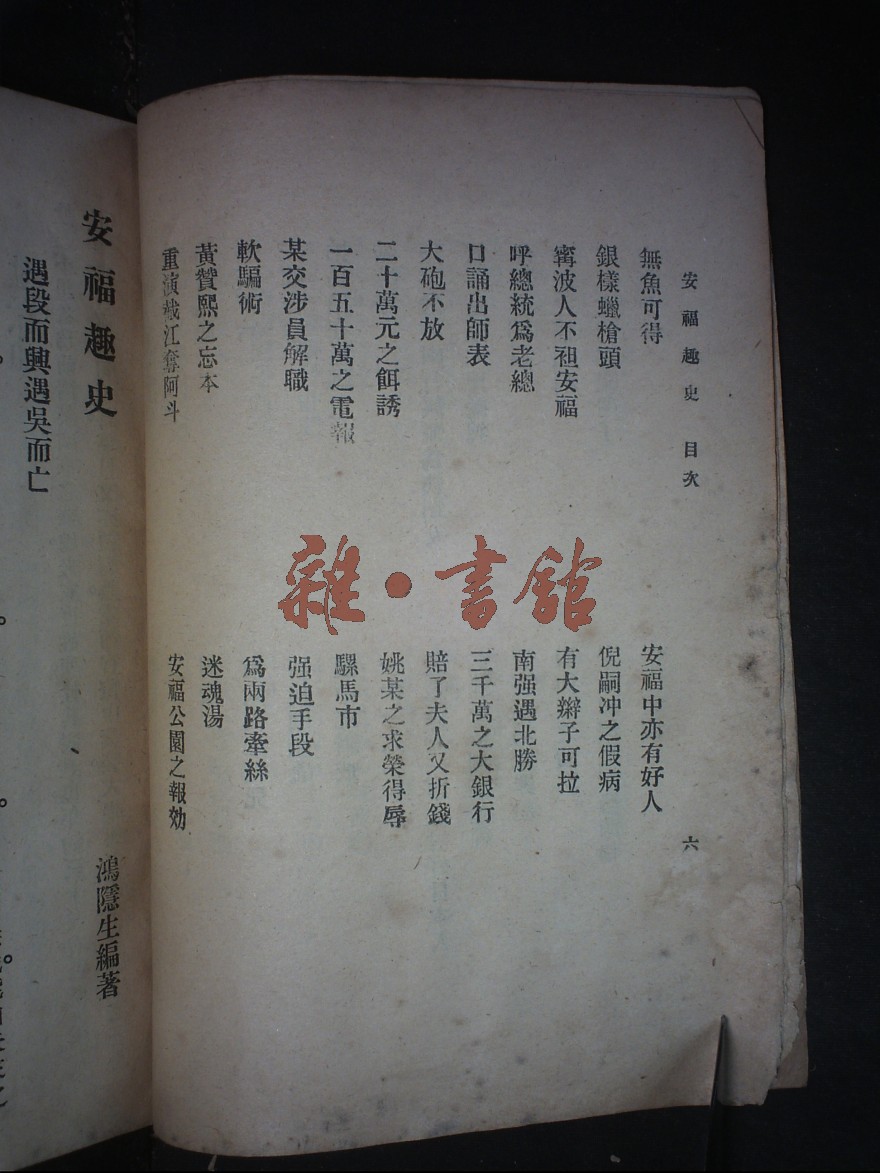 安福趣史 目次 六
無魚可得
安福中亦有好人
銀樣蠟槍頭
倪嗣冲之假病
甯波人不袒安福
有大辮子可拉
呼總統爲老總
南强遇北勝
口誦出師表
三千萬之大銀行
大砲不放
賠了夫人又折錢
二十萬元之餌誘
姚某之求榮得辱
一百五十萬之電報
騾馬市
某交涉員解職
强迫手段
軟騙術
爲兩路牽絲
黃贊熙之忘本
迷魂湯
重演截江奪阿斗
安福公園之報効
雜·書館
安福趣史
鴻隱生編著
遇段而興遇吳而亡